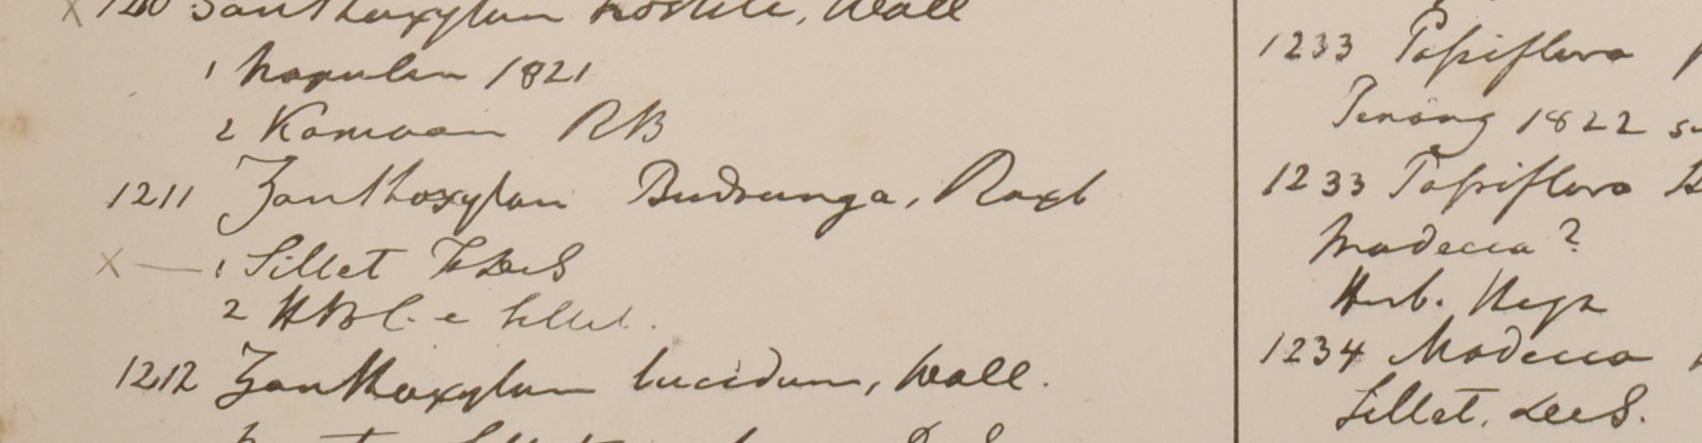 1210 Zanthoxylum hostile, Wall
1 Napulia 1821
2 Kamoan RB
1211 Zanthoxylon Budrunga, Roxb
X — 1 Sillet
2 HBC. e Sillet.
1212 Zanthoxylum lucidum, Wall.
1233 Passiflora
Penang 1822
1233 Passiflora
Modecca?
Herb.
1234 Modecca
Sillet.